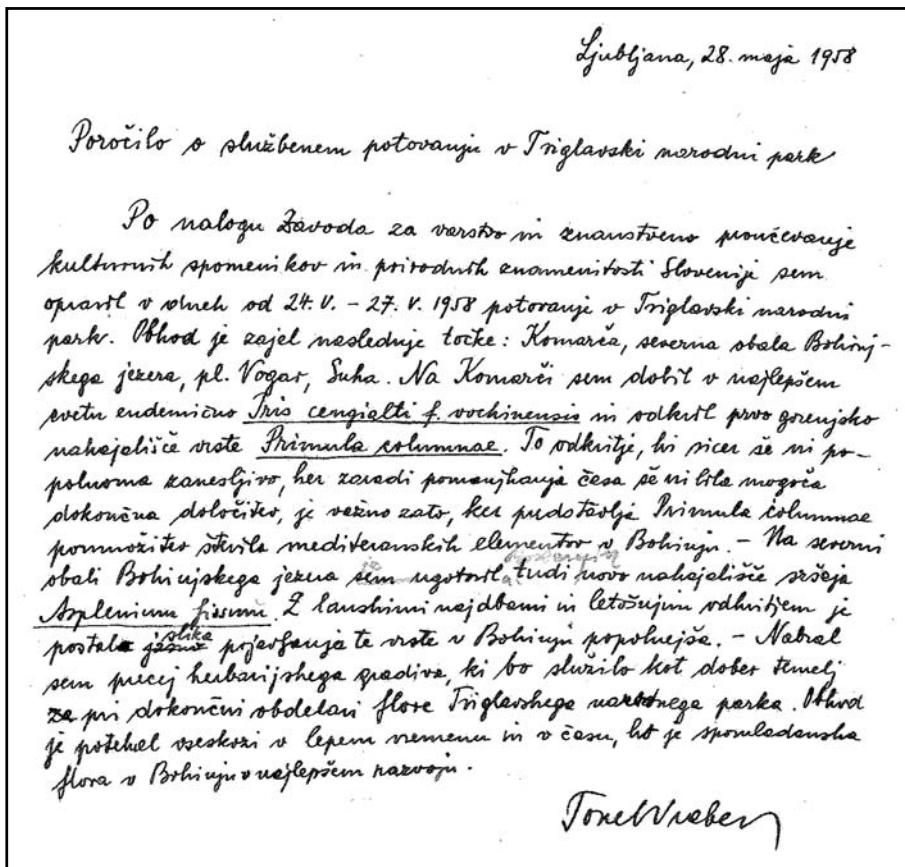 Ljubljana, 28. maja 1958
Poročilo o službenem potovanju v Triglavski narodni park
Po nalogu Zavoda za varstvo in znanstveno proučevanje
kulturnih spomenikov in prirodnih znamenitosti Slovenije sem
opravil v dneh od 24. V. – 27. V. 1958 potovanje v Triglavski narodni
park. Obhod je zajel naslednje točke: Komarča, severna obala Bohinj-
skega jezera, pl. Vogar, Suha. Na Komarči sem dobil v najlepšem
cvetu endemično Iris cengialti f. vochinensis in odkril prvo gorenjsko
nahajališče vrste Primula columnae. To odkritje, ki sicer še ni po-
polnoma zanesljivo, ker zaradi pomanjkanja časa še ni bila mogoča
dokončna določitev, je važno zato, ker predstavlja Primula columnae
pomnožitev števila mediteranskih elementov v Bohinju. – Na severni
obali Bohinjskega jezera sem ugotovil tudi novo nahajališče sršaja
Asplenium fissum. Z lanskimi najdbami in letošnjim odkritjem je
postala slika pojavljanja te vrste v Bohinju popolnejša. – Nabral
sem precej herbarijskega gradiva, ki bo služilo kot dober temelj
za pri dokončni obdelavi flore Triglavskega narodnega parka. Obhod
je potekal vseskozi v lepem vremenu in v času, ko je spomladanska
flora v Bohinju v najlepšem razvoju.
Tone Wraber